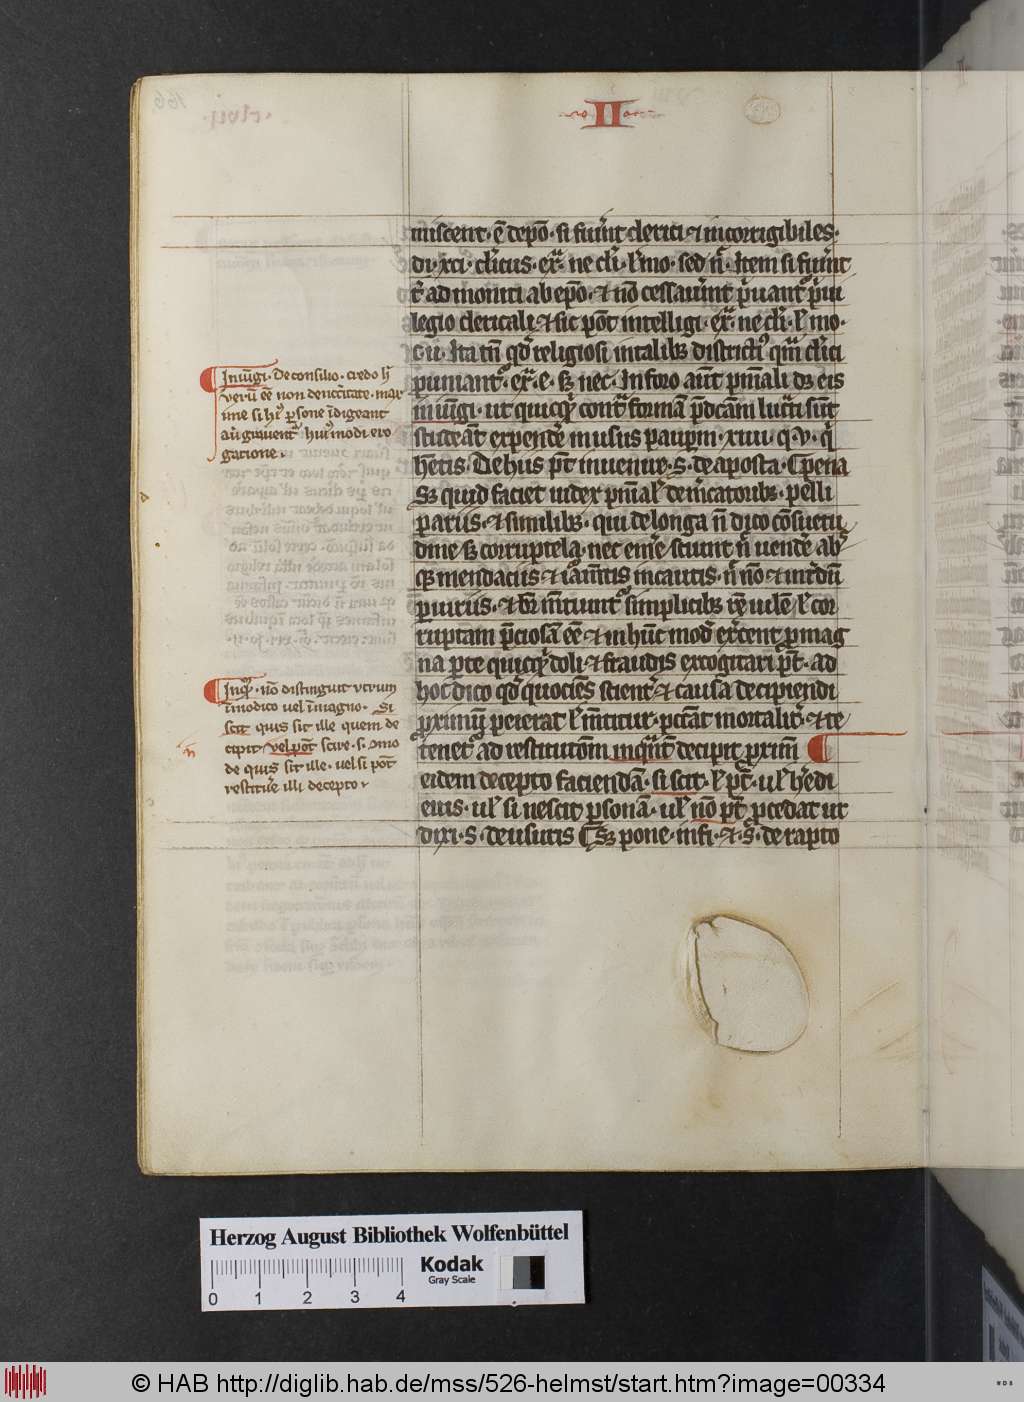 II
miscent · ē depo᷒ · si fuīnt clerici ⁊ incorrigibiles ·
di · xci · cl̄icus · ex̄ · ne cl̄i · l̄ mo · sed n̄ · Item si fuīnt
t̄ ad moniti ab ep̄o · ⁊ nō cessaūint p̄uant᷑ p̄ui
legio clericali ⁊ sic pōt intelligi · ex̄ · ne cl̄i · l̄ mo ·
c · ii · Ita tn̄ qd̓ religiosi in talibꝫ district᷒ qm̄ cl̄ici
puniant᷑ · ex̄ · e · sꝫ nec · In foro aūt pn̄iali dꝫ eis
iniūgi · ut quicq̄ cont̄ formā p̄dcām luc̄ti sūt
studeāt expendē in usus paupm · xiiii · q · v · q̄
hētis · De hiis p̄t inuenire · s̄ · de aposta · ¶ pena
Sꝫ quid faciet iudex pn̄ial᷑ de m̄catoribꝫ · pelli
pariis · ⁊ similibꝫ · qui de longa n̄ dico cōsuetu
dine sꝫ corruptela · nec emē sciunt n̄ uendē absꝫ
qꝫ mendaciis ⁊ iuram̄tis incautis · n̄ nō ⁊ int̄dū
periuriis · ⁊ br̄ m̄ciunt᷑ simplicibꝫ rē uilē l̄ cor
ruptam p̄ciosā eē ⁊ in hūc modū ex̄cent p mag
na parte quicq̄ doli ⁊ fraudis excogitari p̄t · ad
hoc dico qd̓ quociēs scient̄ ⁊ causa decipiendi
proximū peierat l̄ m̄titur · pccāt mortalit̄ · ⁊ te
tenet᷑ ad restitutōm inquātū decipit proximū ¶
eidem decepto faciendā · si scit · l̄ p̄t · ul̄ h̄edi
eius · ul̄ si nescit psonā · ul̄ nō p̄t · pcedat ut
dixi · s̄ · de usuris ¶ Sꝫ pone · infi · ⁊ · s̄ · de rapto
¶ Iniūgi · De consilio · credo h̄
verū eē non de necc̄itate · max
ime si hi᷒ psone īdigeant
aut grauent᷑ huiᷣmodi ero
gatione ·
¶ Inqꝫ · nō distinguit utrum
ī modico uel ī magno · Si
scit quis sit ille quem de
cipit vel pōt scire · s · ōmo
do quis sit ille · uel si pōt
restituē illi decepto ·
Herzog August Bibliothek Wolfenbüttel
Kodak
Gray Scale
0 1 2 3 4
© HAB http://diglib.hab.de/mss/526-helmst/start.htm?image=00334